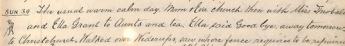 SUN 30 The usual warm calm day Mum & I in church then with Miss Trowbridge
and Ella Grant to Aunts and tea Ella said Good bye. away tomorrow
to Christchurch. Walked over Widerups saw where fence requires to be refixed